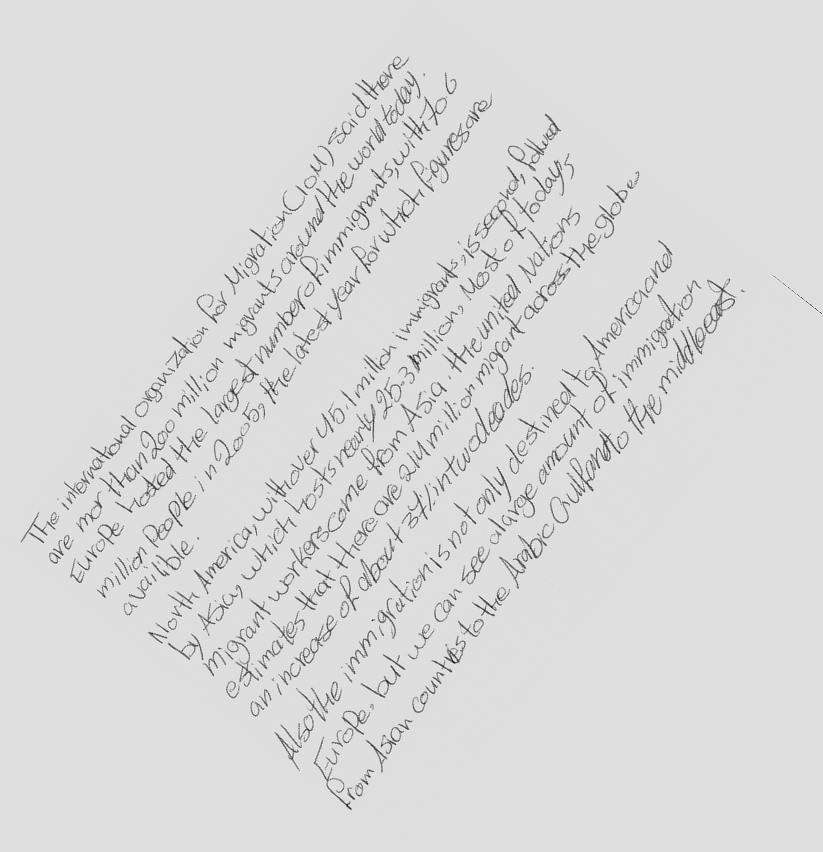 The international organization for Migration (IOM) said there
are mor than 200 million migrants around the world today.
Europe hosted the largest number of immigrants, with 70.6
million People in 2005, the latest year for which figures are
availible.
North America, with over 45.1 million immigrants is second, follwed
by Asia, which hosts nearly 25.3 million, Most of today's
migrant workers come from Asia. the united Nations
estimates that there are 214 million migrant across the globe
an increase of about 37% in two decades.
Also the immigration is not only destined to America and
Europe, but we can see a large amount of immigration
from Asian countries to the Arabic Gulf and to the middle east.